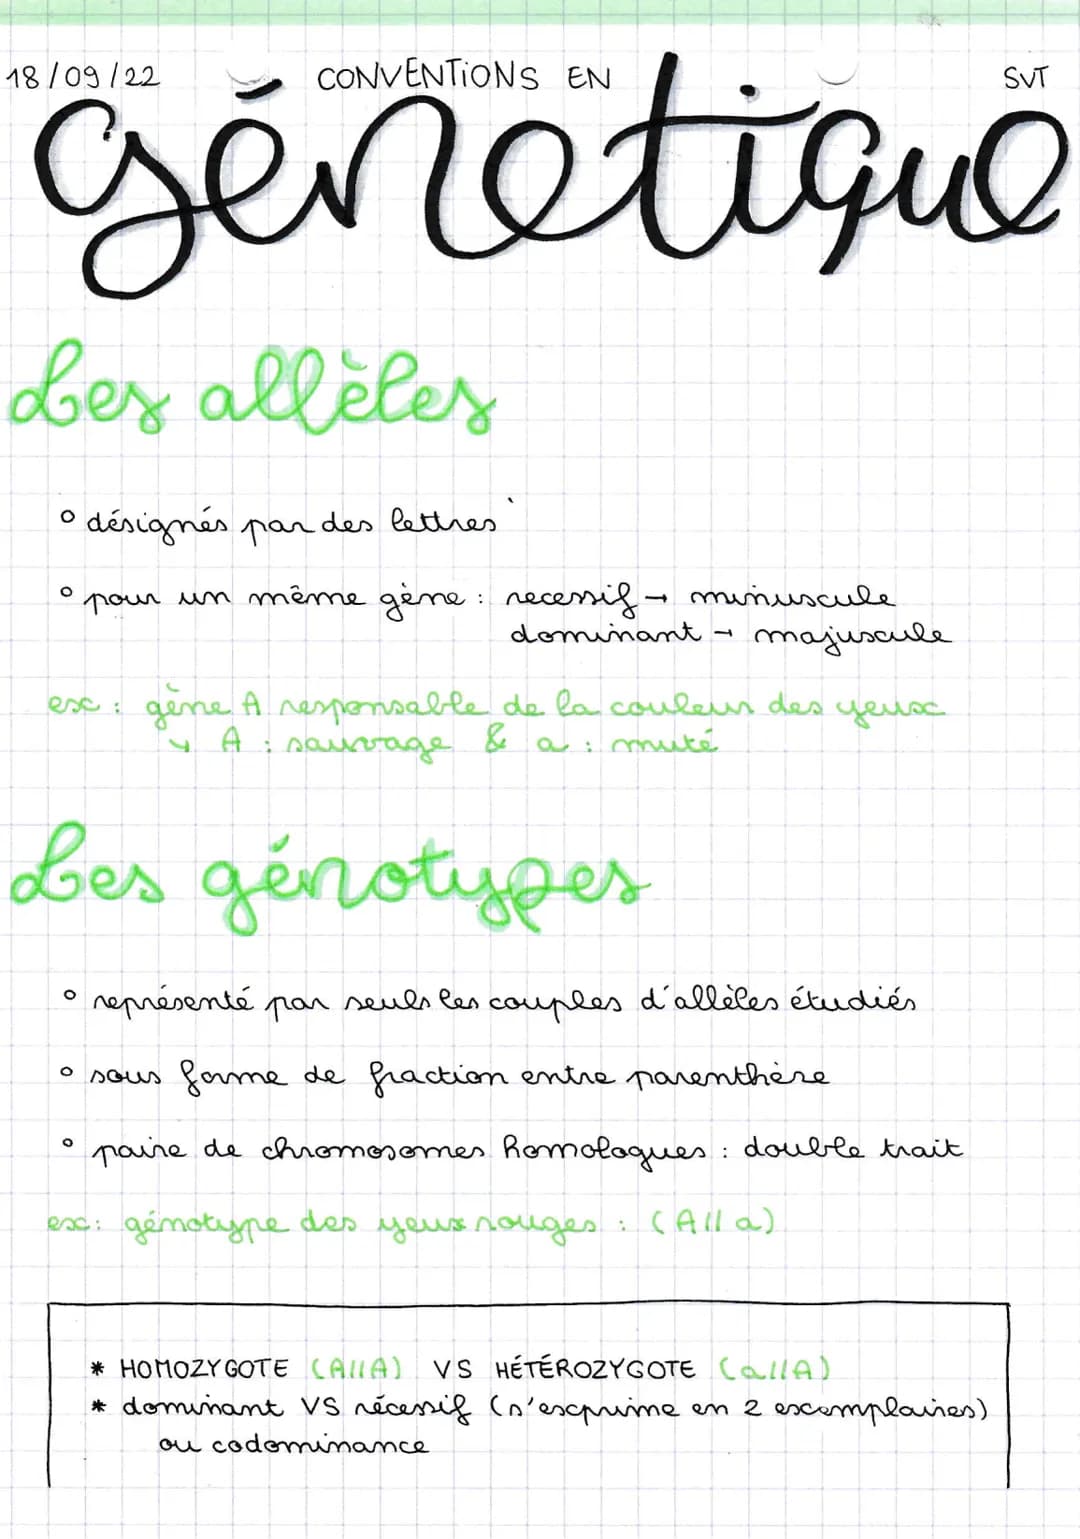 18/09/22 CONVENTIONS EN SVT
génetique
Les allèles
° désignés par des lettres
° pour un même gène : recessif → minuscule
dominant → majuscule
ex : gène A responsable de la couleur des yeux
↳ A : sauvage & a : muté
Les génotypes
° représenté par seuls les couples d'allèles étudiés
° sous forme de fraction entre parenthèse
° paire de chromosomes homologues : double trait
ex : génotype des yeux rouges : (A//a)
* HOMOZYGOTE (A//A) VS HÉTÉROZYGOTE (a//A)
* dominant VS récessif (s'exprime en 2 exemplaires)
ou codominance